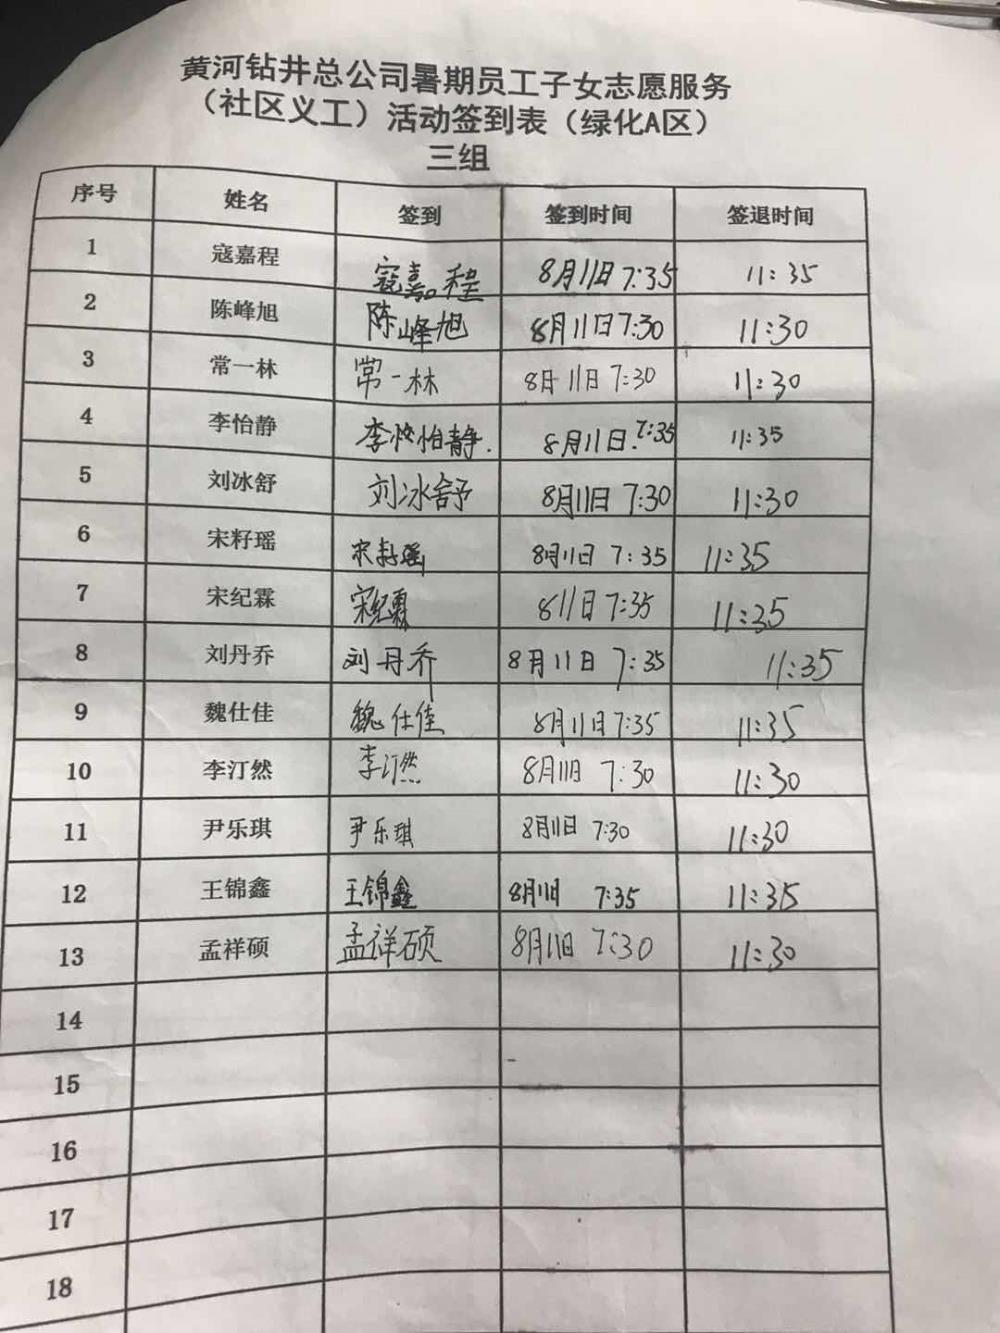 黄河钻井总公司暑期员工子女志愿服务
（社区义工）活动签到表（绿化A区）
三组
序号 姓名 签到 签到时间 签退时间
1 寇嘉程 寇嘉程 8月11日 7:35 11:35
2 陈峰旭 陈峰旭 8月11日 7:30 11:30
3 常一林 常一林 8月11日 7:30 11:30
4 李怡静 李怡静. 8月11日 7:35 11:35
5 刘冰舒 刘冰舒 8月11日 7:30 11:30
6 宋籽瑶 宋籽瑶 8月11日 7:35 11:35
7 宋纪霖 宋纪霖 8 11日 7:35 11:35
8 刘丹乔 刘丹乔 8月11日 7:35 11:35
9 魏仕佳 魏仕佳 8月11日 7:35 11:35
10 李汀然 李汀然 8月11日 7:30 11:30
11 尹乐琪 尹乐琪 8月11日 7:30 11:30
12 王锦鑫 王锦鑫 8月11日 7:35 11:35
13 孟祥硕 孟祥硕 8月11日 7:30 11:30
14
15
16
17
18